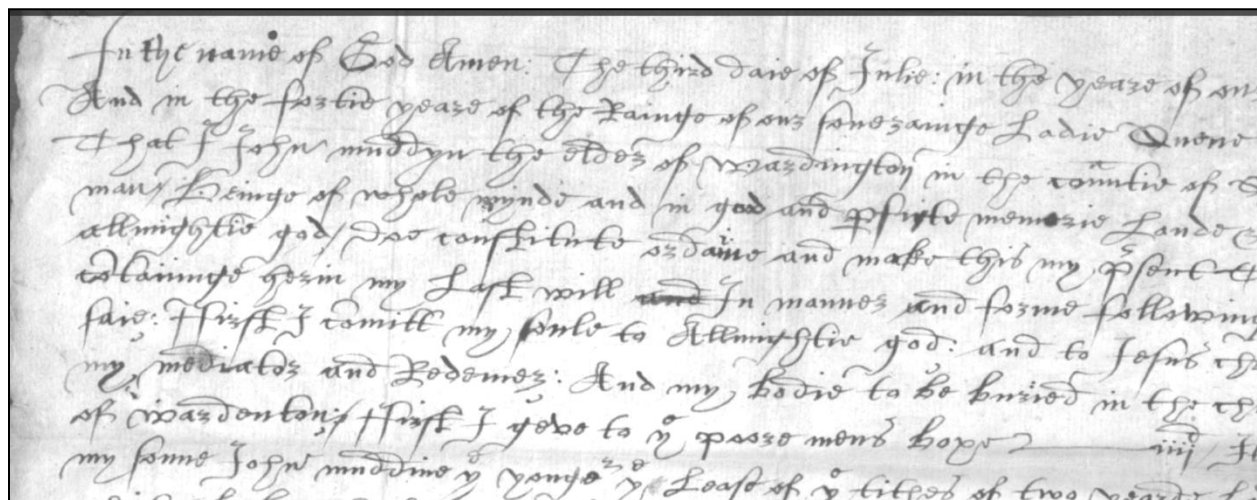 In the name of God Amen: The third daie of Julie: in the yeare of ou
And in the fortie yeare of the Rainge of our soverainge Ladie Quene
That I John muddyn the elder of Wardington in the countie of
man/ Beinge of whole mynde and in good and pficte memorie Laude
allmightie god/ doe constitute ordaine and make this my psent
contaiininge herin my Last will and In manner and forme followin
saie: ffirst I comitt my soule to Allmightie god: and to Jesus ch
my mediator and Redemer: And my bodie to be buried in the ch
of wardenton/ ffirst I geve to ye poore mens boxe iiijd It
my sonne John muddine ye yonger ye Lease of ye tithes of two yeard